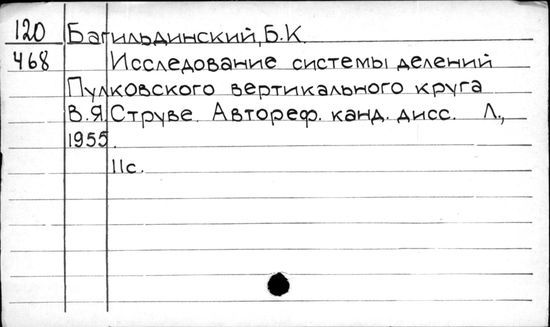 120 Багильдинский, Б.К.
468 Исследование системы делений
Пулковского вертикального круга
В.Я.Струве. Автореф. канд. дисс. Л.,
1955.
11с.